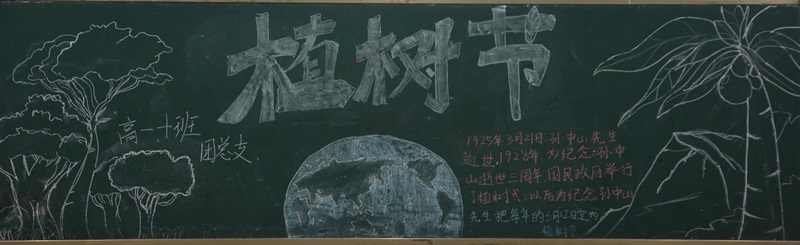 植树节
高一十班
团总支
1925年3月21日.孙中山先生
逝世.1928年.为纪念.孙.中
山逝世三周年国民政府举行
了植树式.以后为纪念孙中山
先生把每年的3月12日定为
植树节